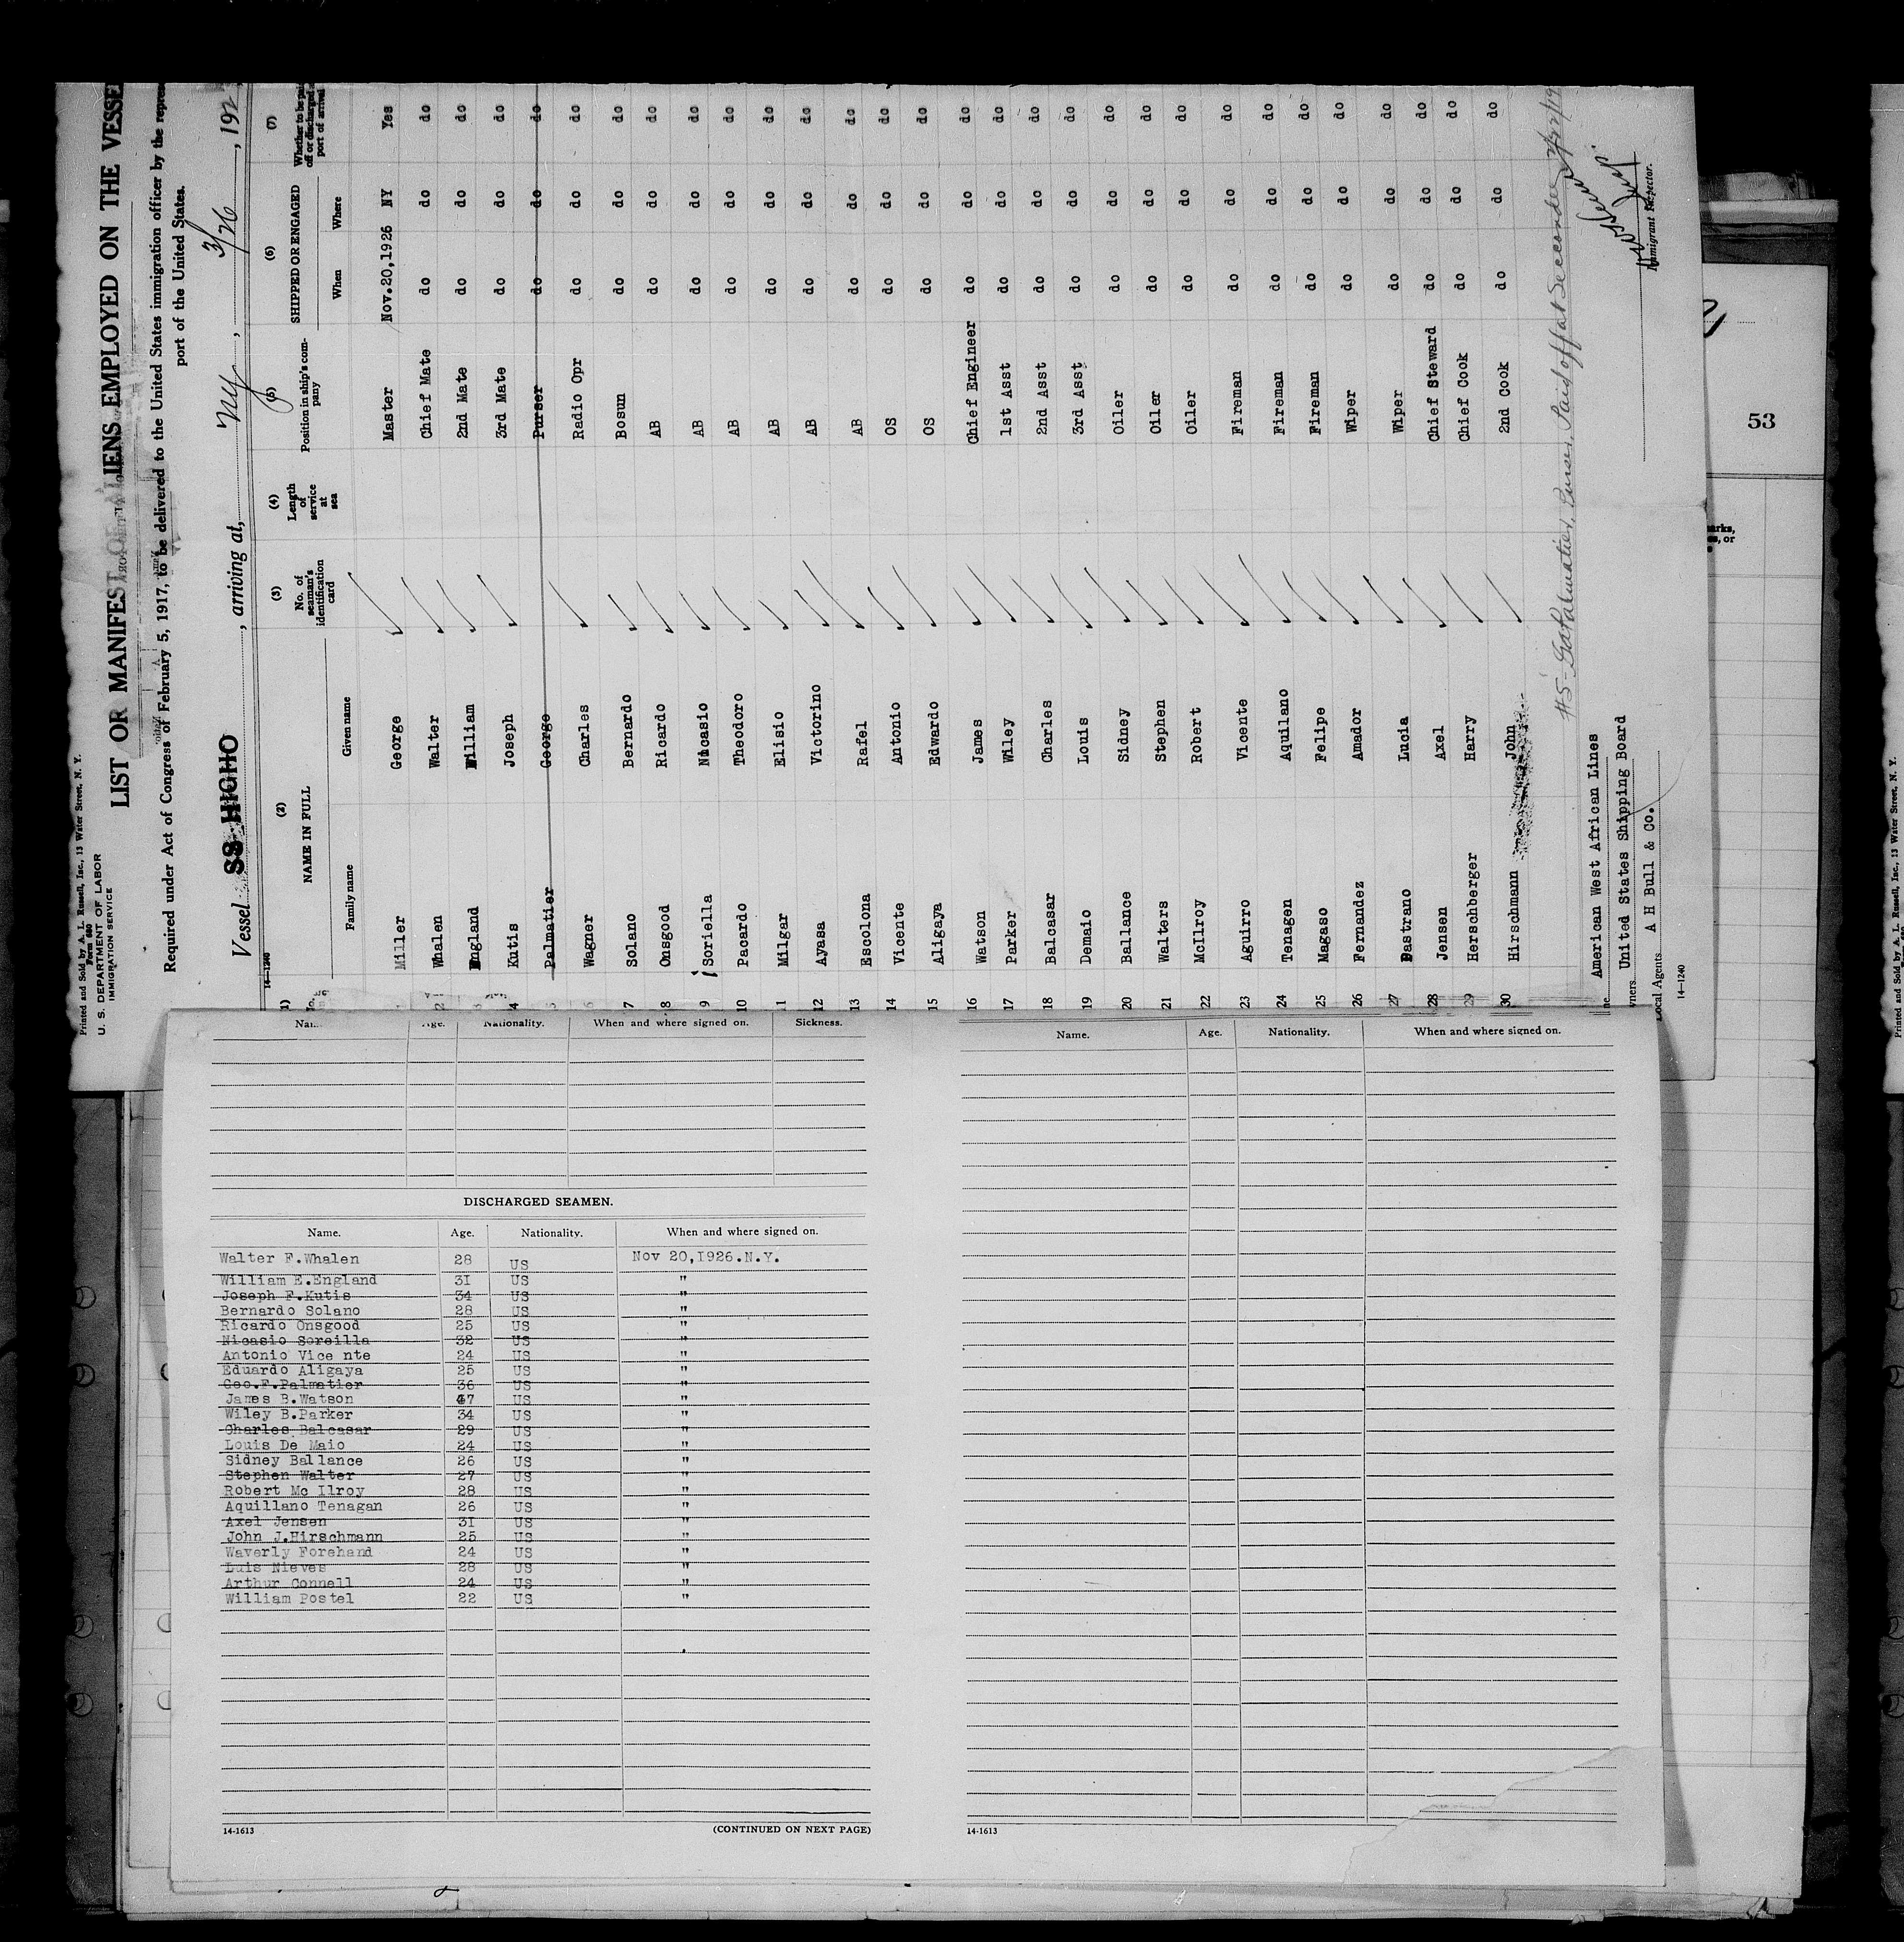 Printed and Sold by A. L. Russell, Inc., 13 Water Street, N. Y.
Form 680
U. S. DEPARTMENT OF LABOR
IMMIGRATION SERVICE
LIST OR MANIFEST OF ALIENS EMPLOYED ON THE VESSEL
Required under Act of Congress of February 5, 1917, to be delivered to the United States immigration officer by the repres
port of the United States.
Vessel SS HIGHO, arriving at, NY, 3/26, 192
14-1240
(1) (2) (3) (4) (5) (6) (7)
NAME IN FULL No. of seaman's identification card Length of service at sea Position in ship's company SHIPPED OR ENGAGED Whether to be paid off or discharged at port of arrival
Family name Given name When Where
1 Miller George Master Nov.20,1926 NY Yes
2 Whalen Walter Chief Mate do do do
3 England William 2nd Mate do do do
4 Kutis Joseph 3rd Mate do do do
5 Palmatier George Purser do do do
6 Wagner Charles Radio Opr do do do
7 Solano Bernardo Bosun do do do
8 Onsgood Ricardo AB do do do
9 Soriella Nicasio AB do do do
10 Pacardo Theodoro AB do do do
11 Milgar Elisio AB do do do
12 Ayasa Victorino AB do do do
13 Escolona Rafel AB do do do
14 Vicente Antonio OS do do do
15 Aligaya Edwardo OS do do do
16 Watson James Chief Engineer do do do
17 Parker Wiley 1st Asst do do do
18 Balcasar Charles 2nd Asst do do do
19 Demaio Louis 3rd Asst do do do
20 Ballance Sidney Oiler do do do
21 Walters Stephen Oiler do do do
22 McIlroy Robert Oiler do do do
23 Aguirro Vicente Fireman do do do
24 Tenagen Aquilano Fireman do do do
25 Magaso Felipe Fireman do do do
26 Fernandez Amador Wiper do do do
27 Pastrano Lucia Wiper do do do
28 Jensen Axel Chief Steward do do do
29 Herschberger Harry Chief Cook do do do
30 Hirschmann John 2nd Cook do do do
#5- Geo Palmatier, Purser, Paid off at Seccondee 2/22/19
American West African Lines
United States Shipping Board
Local Agents A H Bull & Co.
Immigrant Inspector.
14-1240
53
Name. Age. Nationality. When and where signed on. Sickness.
DISCHARGED SEAMEN.
Name. Age. Nationality. When and where signed on.
Walter F.Whalen 28 US Nov 20,1926.N.Y.
William E.England 31 US "
Joseph F.Kutis 34 US "
Bernardo Solano 28 US "
Ricardo Onsgood 25 US "
Nicasio Soreilla 32 US "
Antonio Vice nte 24 US "
Eduardo Aligaya 25 US "
Geo.F.Palmatier 36 US "
James B.Watson 47 US "
Wiley B.Parker 34 US "
Charles Balcasar 29 US "
Louis De Maio 24 US "
Sidney Ballance 26 US "
Stephen Walter 27 US "
Robert Mc Ilroy 28 US "
Aquillano Tenagan 26 US "
Axel Jensen 31 US "
John J.Hirschmann 25 US "
Waverly Forehand 24 US "
Luis Nieves 28 US "
Arthur Connell 24 US "
William Postel 22 US "
14-1613 (CONTINUED ON NEXT PAGE)
Name. Age. Nationality. When and where signed on.
14-1613